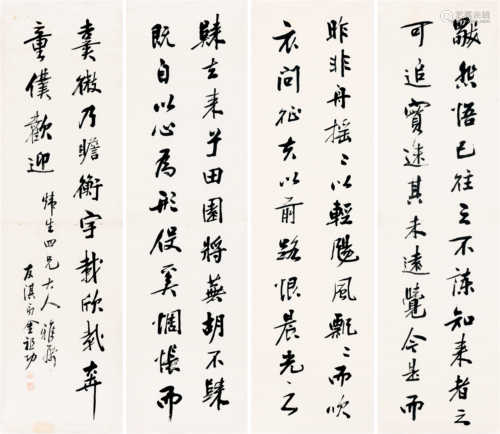 獨悲悟已往之不諫知来者之
可追實迷途其未遠覺今是而
昨非舟摇〻以輕颺風飄〻而吹
衣問征夫以前路恨晨光之
歸去来兮田園將蕪胡不歸
既自以心為形役奚惆悵而
熹微乃瞻衡宇載欣載奔
童僕歡迎
煒生四兄大人雅屬